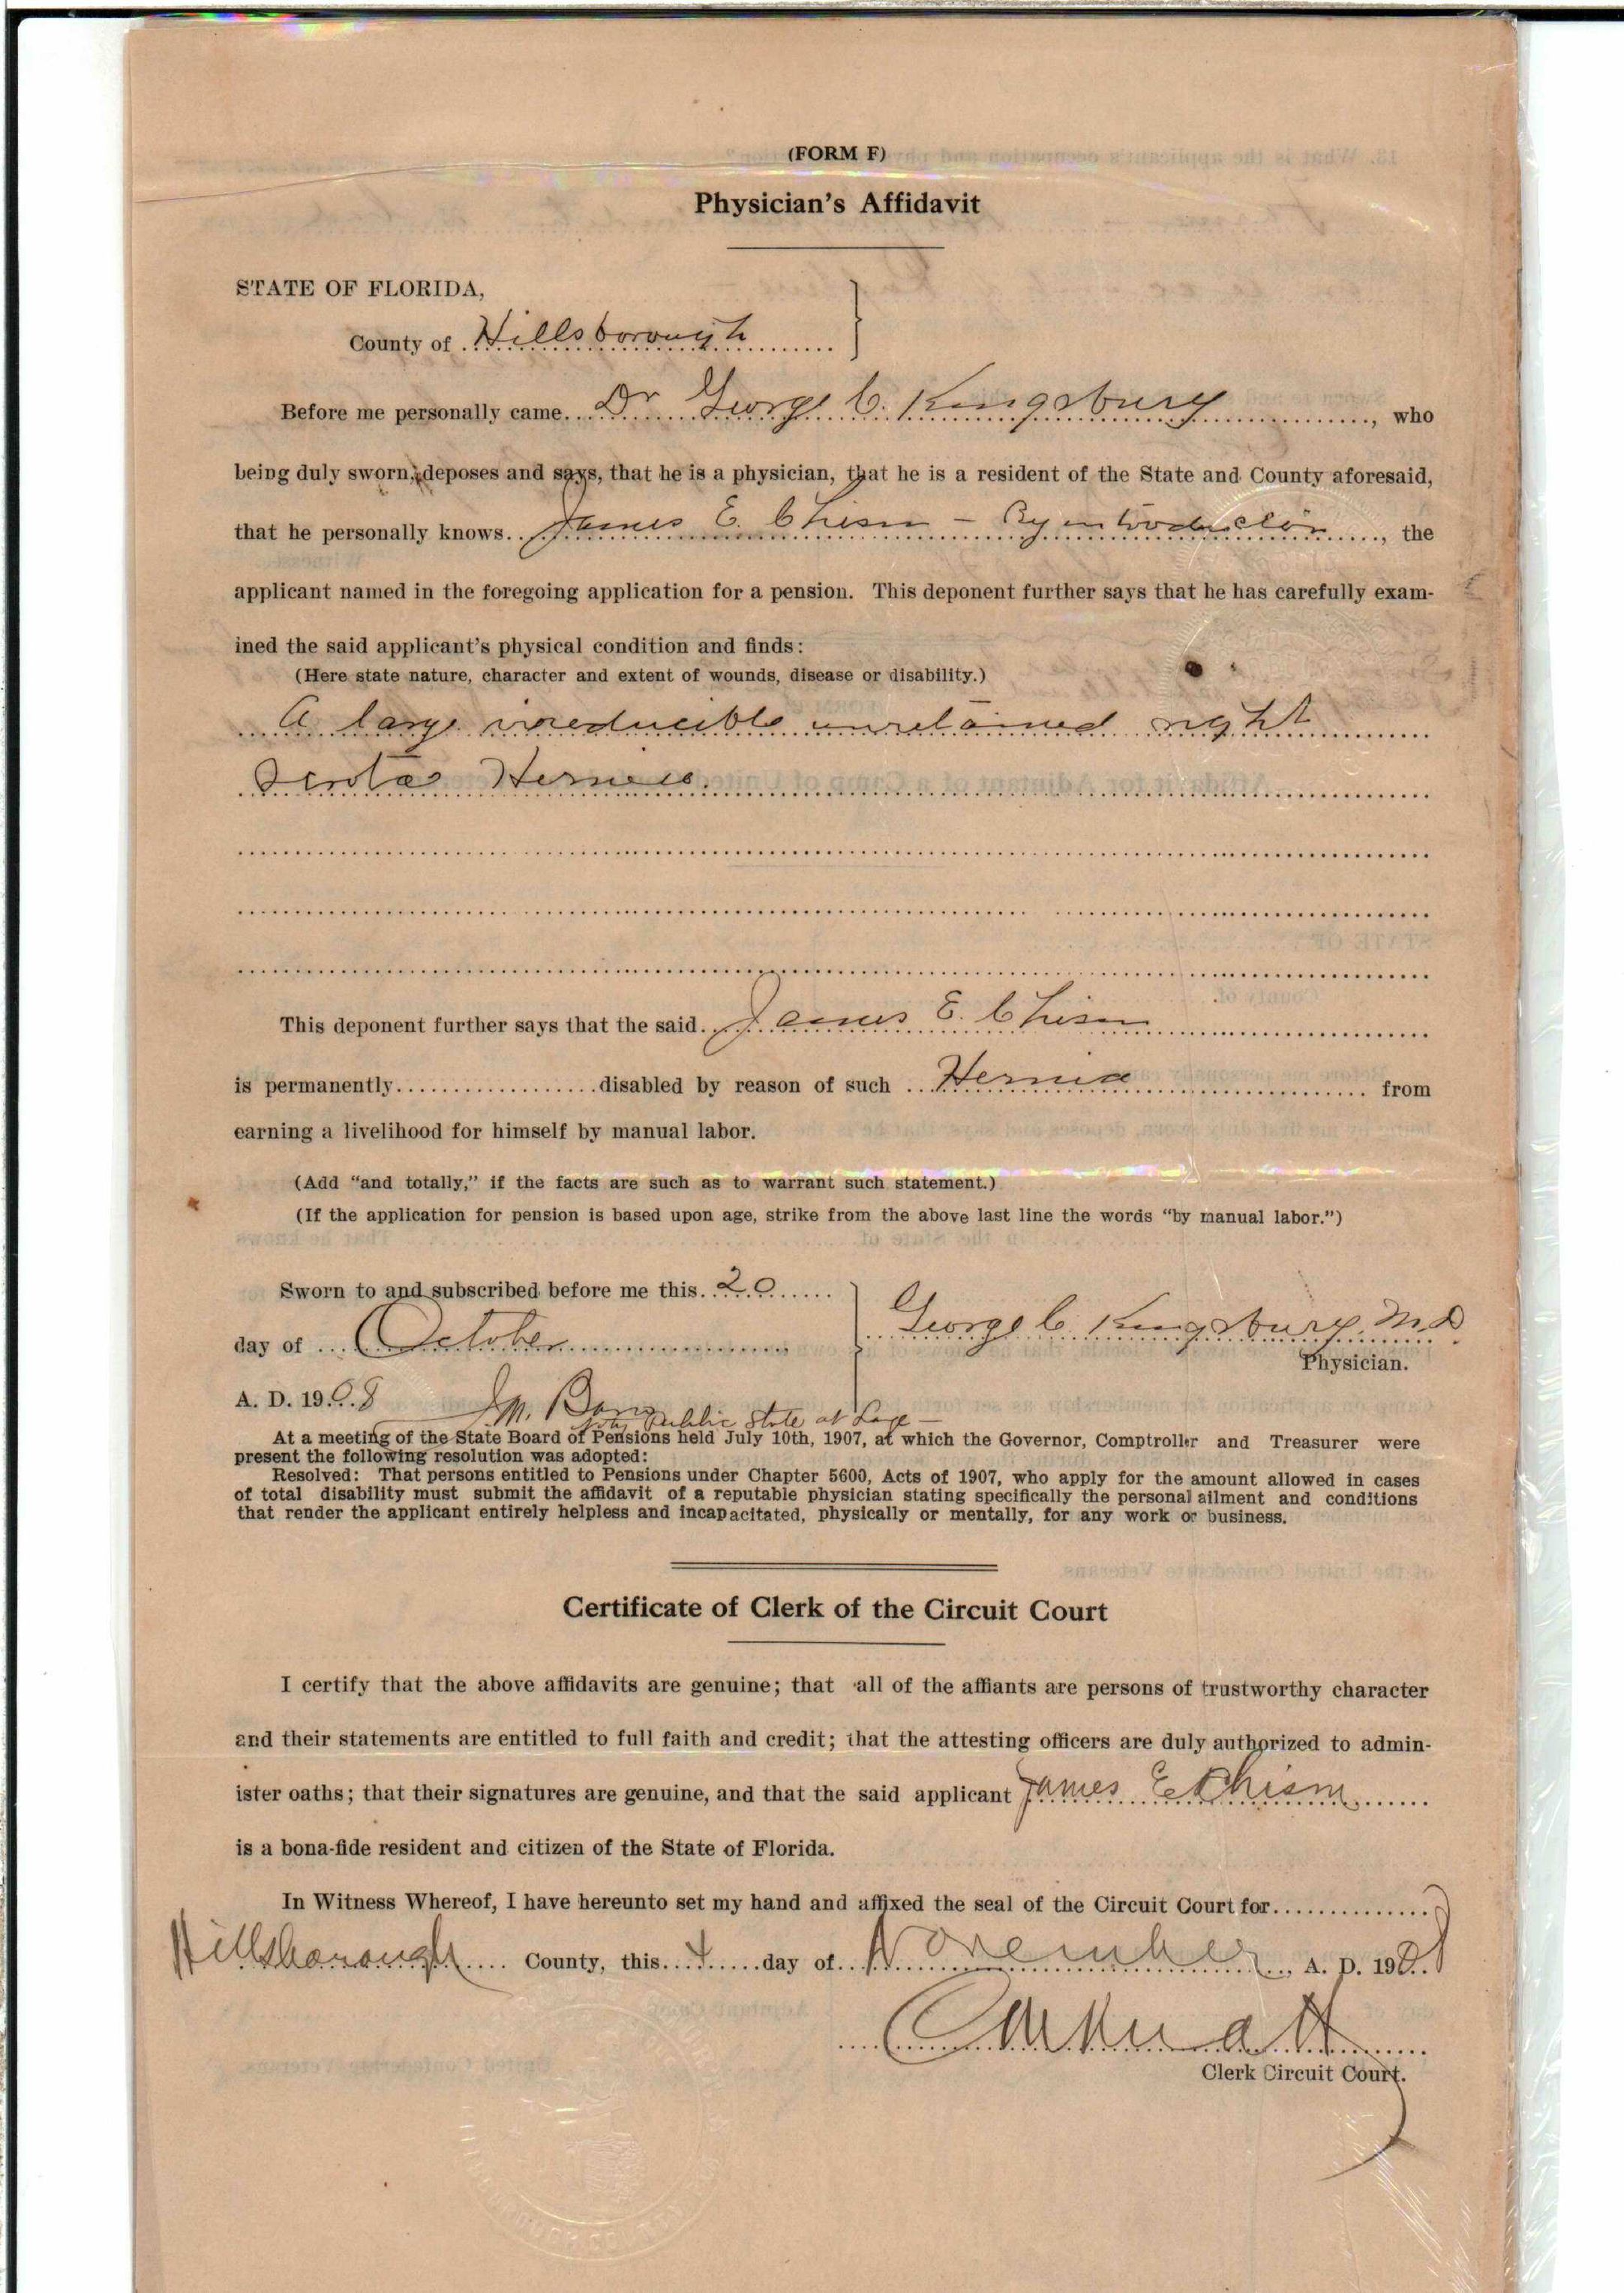 (FORM F)
Physician's Affidavit
STATE OF FLORIDA,
County of Hillsborough
Before me personally came Dr George C. Kingsbury, who
being duly sworn, deposes and says, that he is a physician, that he is a resident of the State and County aforesaid,
that he personally knows James E. Chism - By introduction, the
applicant named in the foregoing application for a pension. This deponent further says that he has carefully exam-
ined the said applicant's physical condition and finds:
(Here state nature, character and extent of wounds, disease or disability.)
A large irreducible unretained right
Hernia.
This deponent further says that the said James E. Chism
is permanently disabled by reason of such Hernia from
earning a livelihood for himself by manual labor.
(Add "and totally," if the facts are such as to warrant such statement.)
(If the application for pension is based upon age, strike from the above last line the words "by manual labor.")
Sworn to and subscribed before me this 20
day of October
George C. Kingsbury, M.D.
Physician.
A. D. 1908
Public State at Large
At a meeting of the State Board of Pensions held July 10th, 1907, at which the Governor, Comptroller and Treasurer were
present the following resolution was adopted:
Resolved: That persons entitled to Pensions under Chapter 5600, Acts of 1907, who apply for the amount allowed in cases
of total disability must submit the affidavit of a reputable physician stating specifically the personal ailment and conditions
that render the applicant entirely helpless and incapacitated, physically or mentally, for any work or business.
Certificate of Clerk of the Circuit Court
I certify that the above affidavits are genuine; that all of the affiants are persons of trustworthy character
and their statements are entitled to full faith and credit; that the attesting officers are duly authorized to admin-
ister oaths; that their signatures are genuine, and that the said applicant James E Chism
is a bona-fide resident and citizen of the State of Florida.
In Witness Whereof, I have hereunto set my hand and affixed the seal of the Circuit Court for
Hillsborough County, this 4 day of November, A. D. 1908
Clerk Circuit Court.